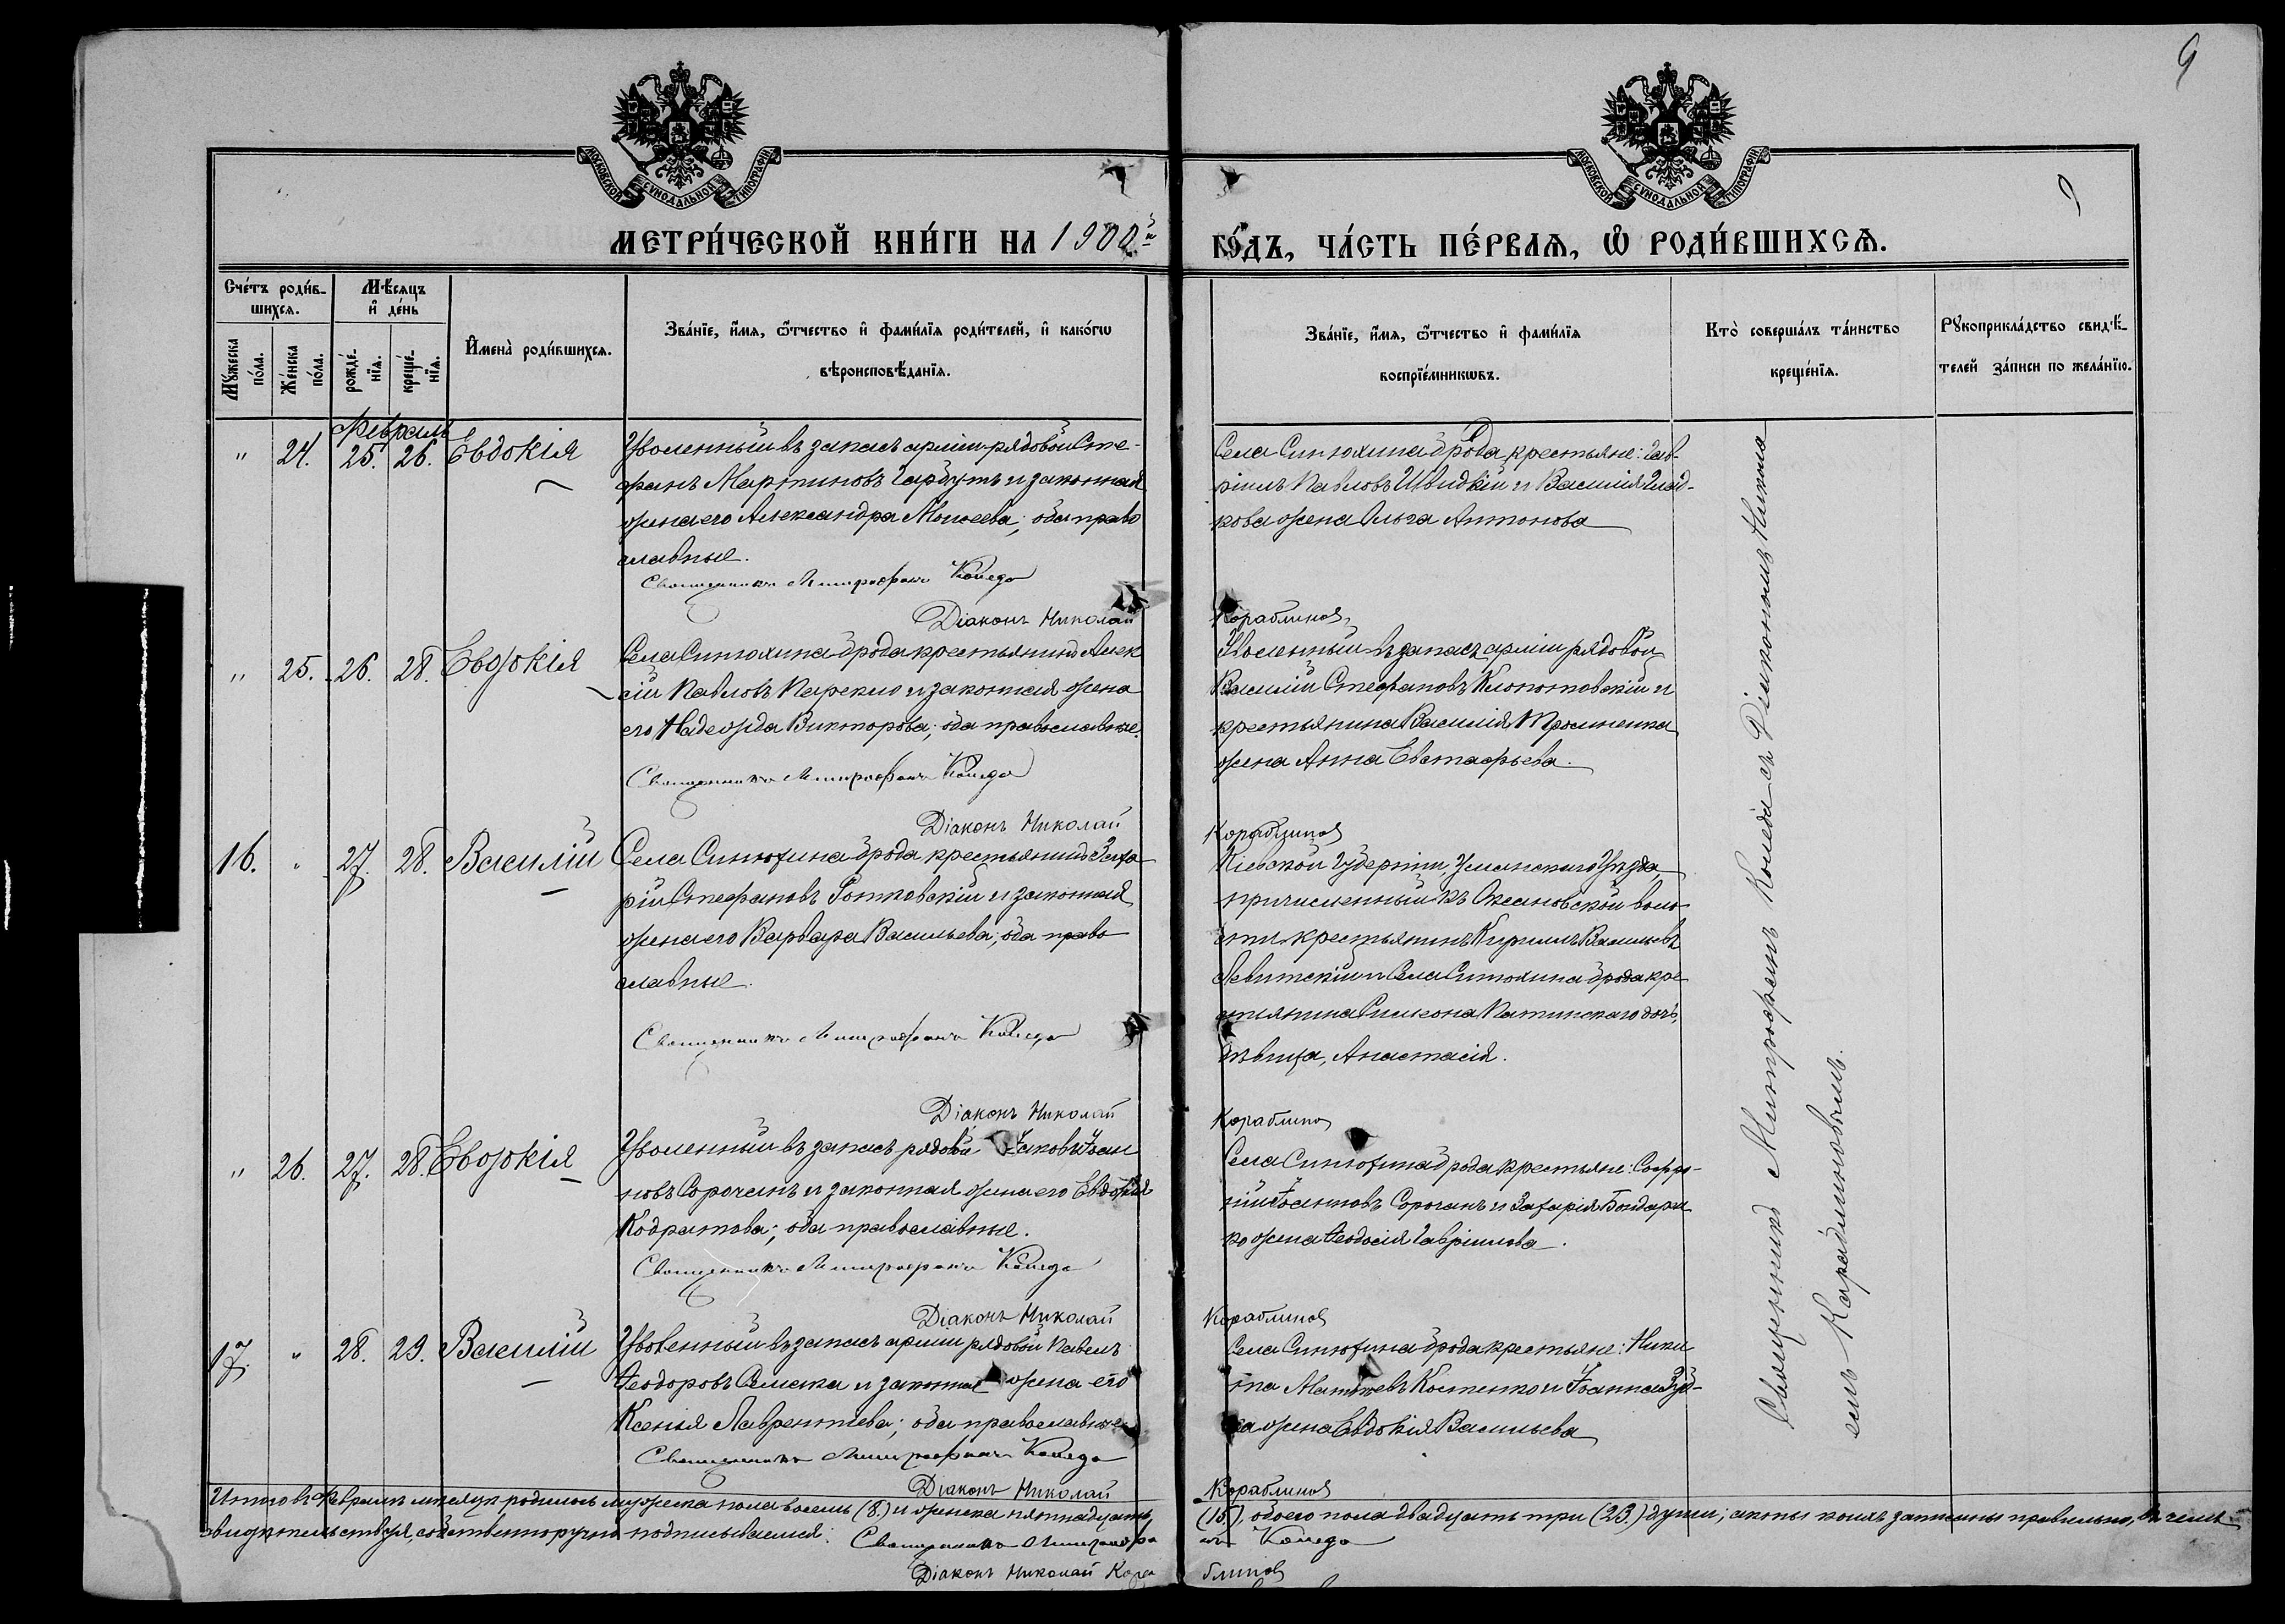 9
МОСКОВСКОЙ СѴНОДАЛЬНОЙ ТИПОГРАФІИ
МОСКОВСКОЙ СѴНОДАЛЬНОЙ ТИПОГРАФІИ
9
МЕТРИ́ЧЕСКОЙ КНИ́ГИ НА 1900й
ГО́ДЪ, ЧА́СТЬ ПЕ́РВАѦ, Ѽ РОДИ́ВШИХСѦ.
Сче́тъ роди́в-
шихсѧ.
Мꙋ́жеска
по́ла.
Же́нска
по́ла.
Мѣ́сѧцъ
и҆ де́нь
рожде́-
нїѧ.
креще́-
нїѧ.
И҆мена̀ роди́вшихсѧ.
Зва́нїе, и҆́мѧ, ѻ҆́тчество и҆ фами́лїѧ роди́телей, и҆ како́гѡ
вѣроисповѣ́данїѧ.
Зва́нїе, и҆́мѧ, ѻ҆́тчество и҆ фами́лїѧ
воспрїе́мникѡвъ.
Кто̀ соверша́лъ та́инство
креще́нїѧ.
Рꙋкоприкла́дство свидѣ́-
телей за́писи по жела́нїю.
Февраль
" 24. 25. 26. Евдокія
Уволенный въ запасъ арміи рядовой Сте-
фанъ Мартиновъ Гарбузъ и законная
жена его Александра Моисеева; оба право
славные.
Священникъ Митрофанъ Коледа
Діаконъ Николай
Села Синюхина брода крестьяне: Гав-
ріилъ Павловъ Швидкій и Василія Глад-
кова жена Ольга Антонова
Кораблиновъ
" 25. 26. 28. Евдокія
Села Синюхина брода крестьянинъ Алек
сій Павловъ и законная жена
его Надежда Викторова; оба православные.
Священникъ Митрофанъ Коледа
Діаконъ Николай
Уволенный въ запасъ арміи рядовой
Василій Стефановъ Клопотовскій и
крестьянина Василія
жена Анна Евстафьева.
Кораблиновъ
16. " 27. 28. Василій
Села Синюхина брода крестьянинъ Заха
рій Стефановъ и законная
жена его Варвара Васильева; оба право
славные.
Священникъ Митрофанъ Коледа
Діаконъ Николай
Кіевской Губерніи, Уманскаго Уѣзда,
причисленный къ Оксановской воло
сти крестьянинъ Кириллъ Васильевъ
Левитскій и Села Синюхина брода кре
стьянина Симеона дочь,
дѣвица, Анастасія.
Кораблиновъ
" 26. 27. 28. Евдокія
Уволенный въ запасъ рядовой Іаковъ Іоан
новъ Сорочанъ и законная жена его Евдокія
Кодратова; оба православные.
Священникъ Митрофанъ Коледа
Діаконъ Николай
Села Синюхина брода крестьяне: Софро-
ній Іоанновъ Сорочанъ и Захарія Бондарен
ко жена Ѳеодосія Гавріилова.
Кораблиновъ
17. " 28. 29. Василій
Уволенный въ запасъ арміи рядовой Павелъ
Ѳеодоровъ Семака и законная жена его
Ксенія Лаврентіева; оба православные
Священникъ Митрофанъ Коледа
Діаконъ Николай
Села Синюхина брода крестьяне: Ники
та Матѳеевъ Костенко и Іоанна
жена Евдокія Васильева
Кораблиновъ
Священникъ Митрофанъ Коледа съ Діакономъ Никола
емъ Кораблиновымъ.
Итого въ Февралѣ мѣсяцѣ родилось мужеска пола восемь (8.) и женска пятнадцать
(15), обоего пола двадцать три (23.) души; акты коихъ записаны правильно, въ чемъ
свидѣтельствуя, собственноручно подписываемся: Священникъ Митрофа
нъ Коледа
Діаконъ Николай Кора
блиновъ